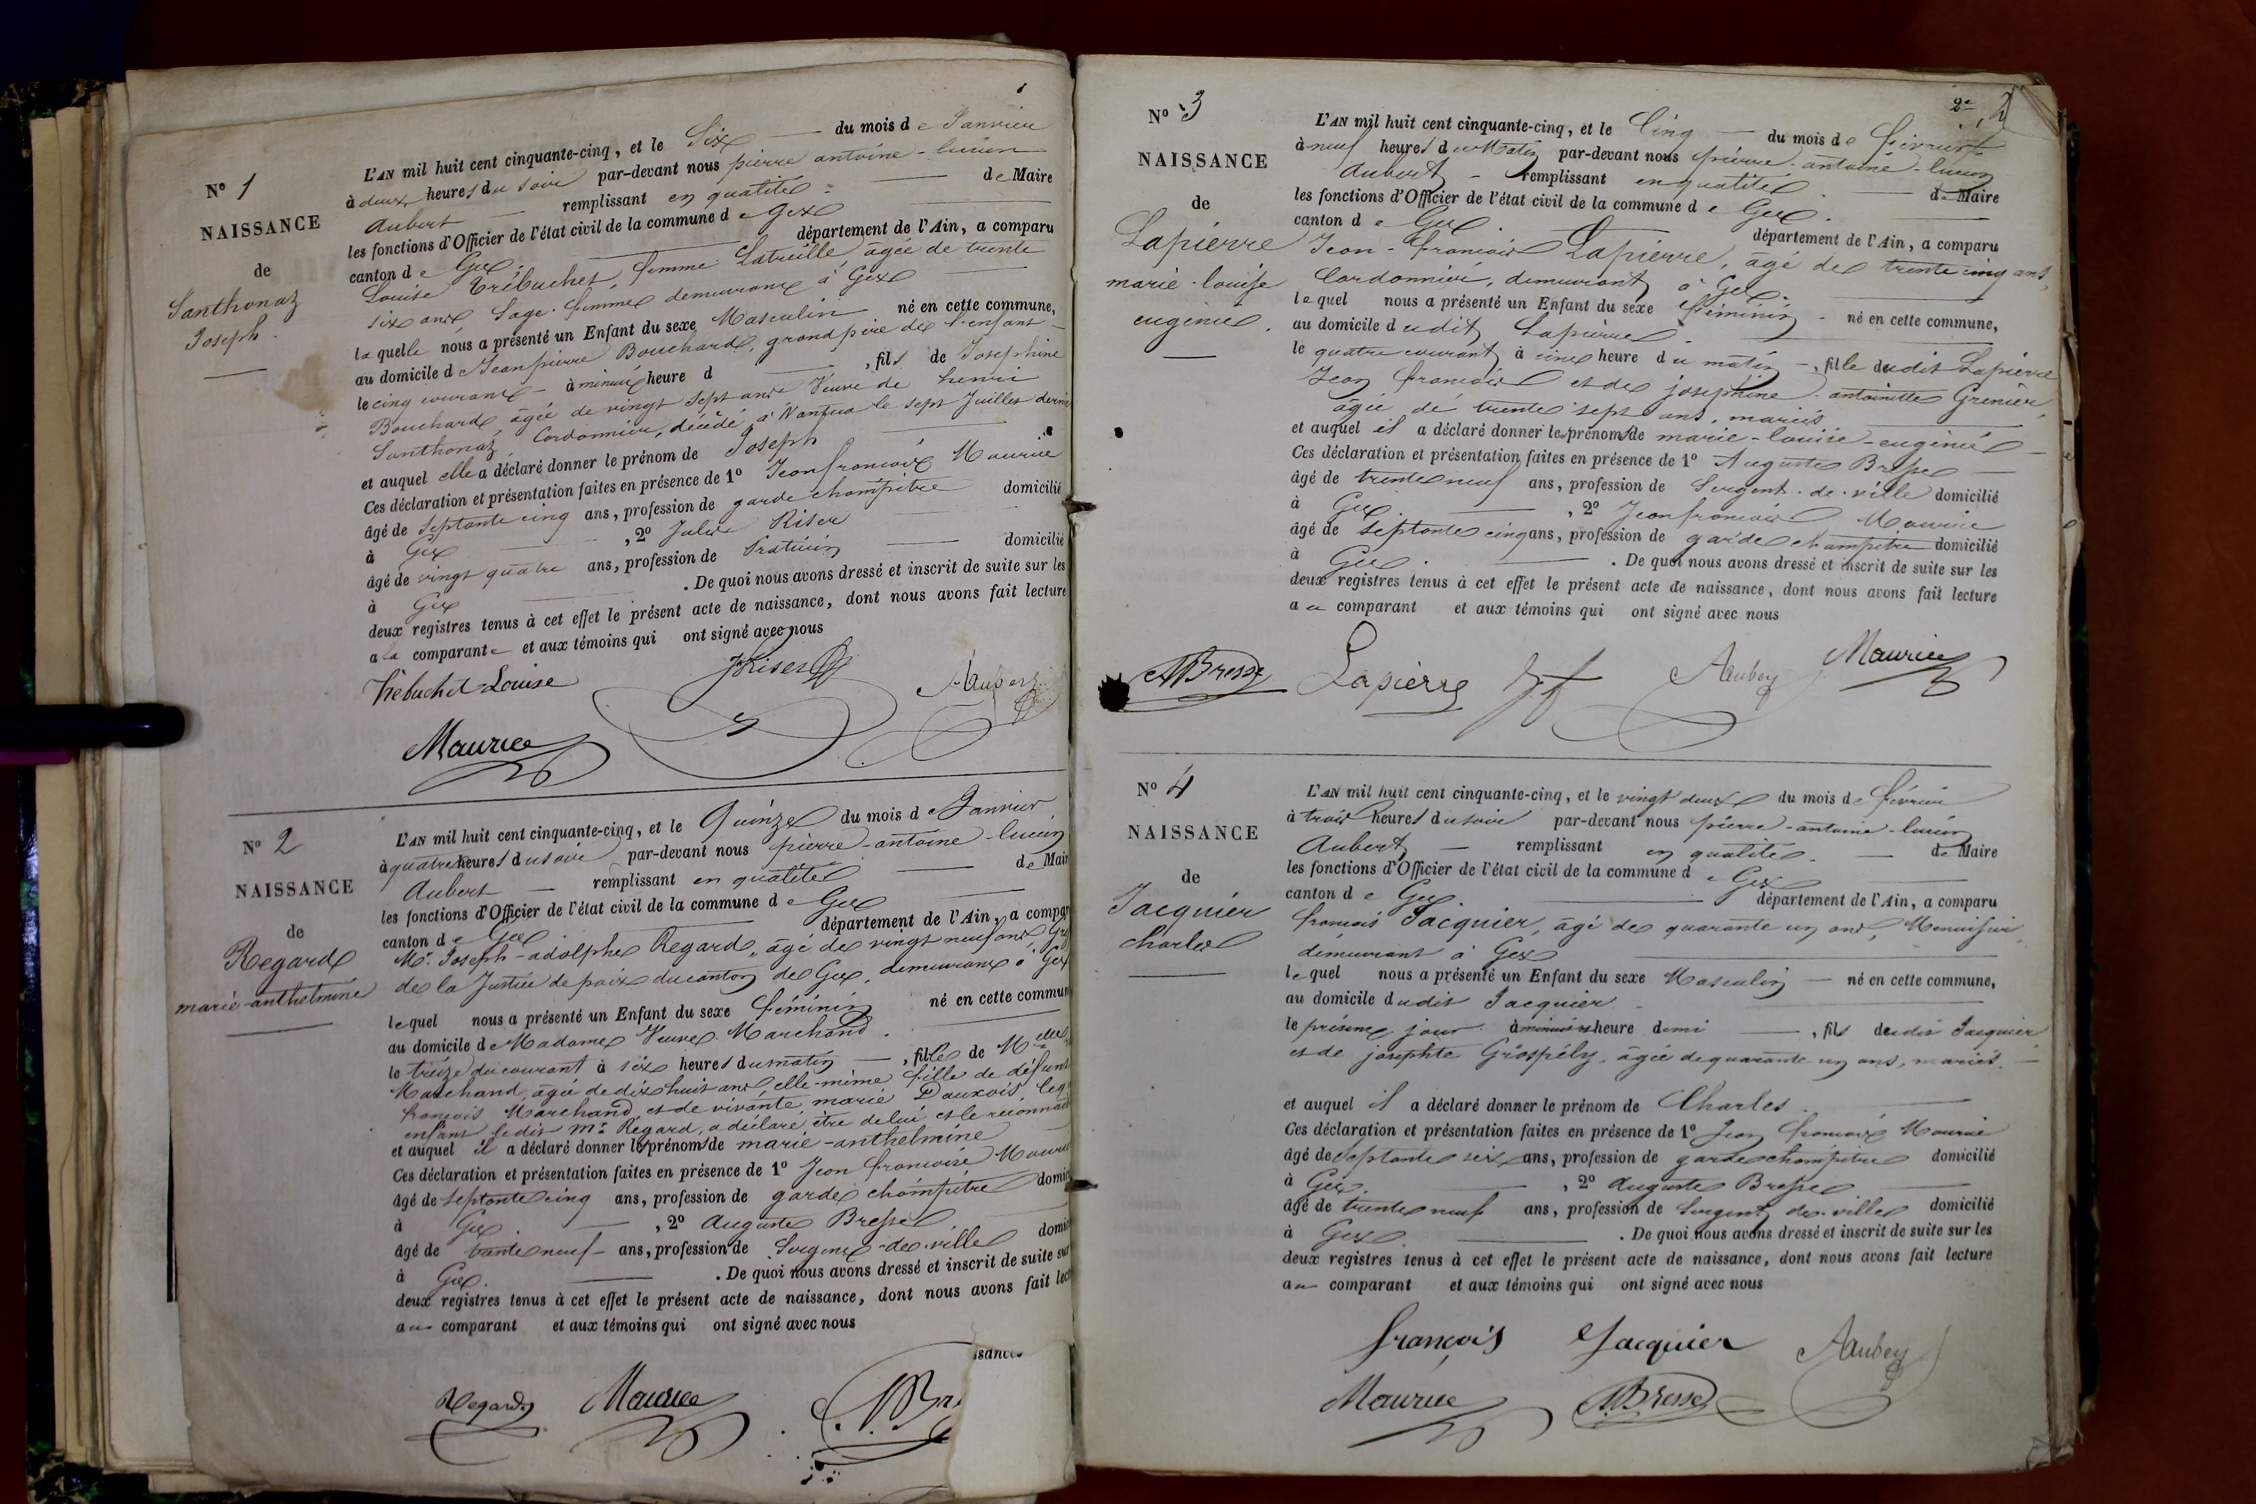 1
N° 1
NAISSANCE
de
Santhonax
Joseph.
L'AN mil huit cent cinquante-cinq, et le Six du mois de Janvier
à deux heures du soir par-devant nous pierre antoine-lucien
Aubert remplissant en qualité de Maire
les fonctions d'Officier de l'état civil de la commune de Gex
canton de Gex. département de l'Ain, a comparu
Louise Trébuchet, femme Latreille, âgée de trente
six ans, Sage-femme demeurant à Gex
laquelle nous a présenté un Enfant du sexe Masculin né en cette commune,
au domicile de Jean pierre Bouchard, grand père de l'enfant
le cinq courant à minuit heure d , fils de Josephine
Bouchard, âgée de vingt sept ans Veuve de henri
Santhonax, Cordonnier, décédé à Nantua le sept Juillet dernier
et auquel elle a déclaré donner le prénom de Joseph
Ces déclaration et présentation faites en présence de 1° Jean françois Maurice
âgé de septante cinq ans, profession de garde champêtre domicilié
à Gex , 2° Jules Riser
âgé de vingt quatre ans, profession de Praticien domicilié
à Gex . De quoi nous avons dressé et inscrit de suite sur les
deux registres tenus à cet effet le présent acte de naissance, dont nous avons fait lecture
a la comparante et aux témoins qui ont signé avec nous
Trebuchet Louise JRiser Aubert
Maurice
N° 2
NAISSANCE
de
Regard
marie-anthelmine
L'AN mil huit cent cinquante-cinq, et le Quinze du mois de Janvier
à quatre heures du soir par-devant nous pierre-antoine-lucien
Aubert remplissant en qualité de Mair
les fonctions d'Officier de l'état civil de la commune de Gex
canton de Gex département de l'Ain, a compar
Mr. Joseph-adolphe Regard, âgé de vingt neuf ans, Gr
de la Justice de paix du canton de Gex, demeurant à Gex
lequel nous a présenté un Enfant du sexe féminin né en cette commun
au domicile de Madame Veuve Marchand.
le treize du courant à six heures du matin , fille de Melle
Marchand, âgée de dix huit ans, elle-même fille de défunt
françois Marchand et de vivante marie Dauxois, leq
enfant ledit Mr. Regard, a déclaré être de lui et le reconnait
et auquel il a déclaré donner les prénoms de marie-anthelmine
Ces déclaration et présentation faites en présence de 1° Jean françoise Mauri
âgé de septante cinq ans, profession de garde champêtre domici
à Gex. , 2° Auguste Bresse
âgé de trente neuf ans, profession de Sergent-de-ville domic
à Gex. . De quoi nous avons dressé et inscrit de suite sur
deux registres tenus à cet effet le présent acte de naissance, dont nous avons fait lect
au comparant et aux témoins qui ont signé avec nous
ssances
Regard Maurice
2e 2
N° 3
NAISSANCE
de
Lapierre
marie-louise
eugénie.
L'AN mil huit cent cinquante-cinq, et le Cinq du mois de février
à neuf heures du Matin par-devant nous pierre-antoine-lucien
Aubert remplissant en qualité de Maire
les fonctions d'Officier de l'état civil de la commune de Gex.
canton de Gex. département de l'Ain, a comparu
Jean-françois Lapierre, âgé de trente cinq ans,
Cordonnier, demeurant à Gex.
lequel nous a présenté un Enfant du sexe féminin né en cette commune,
au domicile dudit Lapierre.
le quatre courant à une heure du matin , fille dudit Lapierre
Jean françois et de josephine-antoinette Grenier,
âgée de trente sept ans, mariés
et auquel il a déclaré donner les prénoms de marie-louise-eugénie
Ces déclaration et présentation faites en présence de 1° Auguste Bresse
âgé de trente neuf ans, profession de Sergent-de-ville domicilié
à Gex. , 2° Jean françois Maurice
âgé de septante cinq ans, profession de garde champêtre domicilié
à Gex. . De quoi nous avons dressé et inscrit de suite sur les
deux registres tenus à cet effet le présent acte de naissance, dont nous avons fait lecture
au comparant et aux témoins qui ont signé avec nous
ABresse Lapierre Jf Aubert Maurice
N° 4
NAISSANCE
de
Jacquier
Charles
L'AN mil huit cent cinquante-cinq, et le vingt deux du mois de février
à trois heures du soir par-devant nous pierre-antoine-lucien
Aubert remplissant en qualité. de Maire
les fonctions d'Officier de l'état civil de la commune de Gex
canton de Gex. département de l'Ain, a comparu
françois Jacquier, âgé de quarante un ans, Menuisier,
demeurant à Gex
lequel nous a présenté un Enfant du sexe Masculin né en cette commune,
au domicile dudit Jacquier
le présent jour à minuit et heure demi , fils dudit Jacquier
et de josephte Grospély, âgée de quarante un ans, mariés.
et auquel il a déclaré donner le prénom de Charles.
Ces déclaration et présentation faites en présence de 1° Jean françois Maurice
âgé de septante six ans, profession de garde champêtre domicilié
à Gex , 2° Auguste Bresse
âgé de trente neuf ans, profession de Sergent de ville domicilié
à Gex. . De quoi nous avons dressé et inscrit de suite sur les
deux registres tenus à cet effet le présent acte de naissance, dont nous avons fait lecture
au comparant et aux témoins qui ont signé avec nous
françois Jacquier Aubert
Maurice ABresse